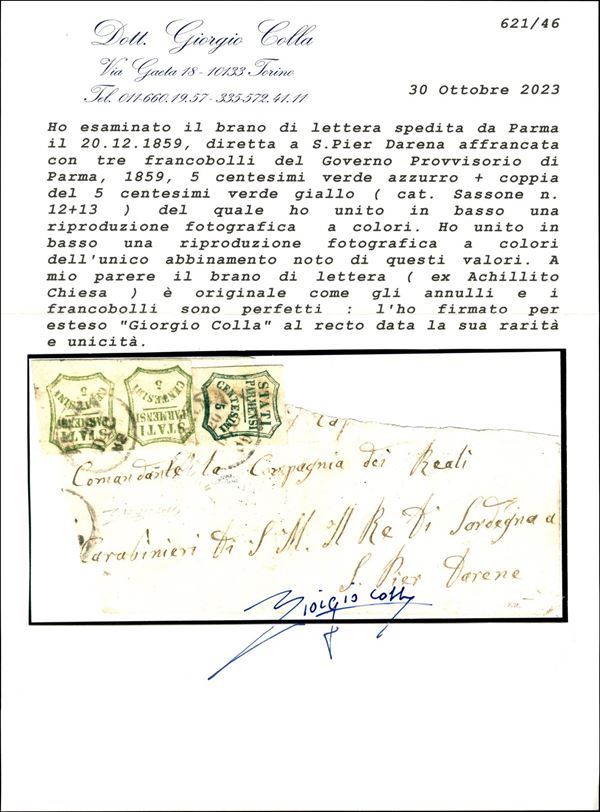 621/46
Dott. Giorgio Colla
Via Gaeta 18 - 10133 Torino
Tel. 011-660.19.57 - 335-572.41.11
30 Ottobre 2023
Ho esaminato il brano di lettera spedita da Parma
il 20.12.1859, diretta a S.Pier Darena affrancata
con tre francobolli del Governo Provvisorio di
Parma, 1859, 5 centesimi verde azzurro + coppia
del 5 centesimi verde giallo ( cat. Sassone n.
12+13 ) del quale ho unito in basso una
riproduzione fotografica a colori. Ho unito in
basso una riproduzione fotografica a colori
dell'unico abbinamento noto di questi valori. A
mio parere il brano di lettera ( ex Achillito
Chiesa ) è originale come gli annulli e i
francobolli sono perfetti : l'ho firmato per
esteso "Giorgio Colla" al recto data la sua rarità
e unicità.
STATI PARMENSI CENTESIMI 5
STATI PARMENSI CENTESIMI 5
STATI PARMENSI CENTESIMI 5
Cap
Comandante la Compagnia dei Reali
Carabinieri Di S. M. Il Re Di Sardegna a
S. Pier Darene
Giorgio Colla